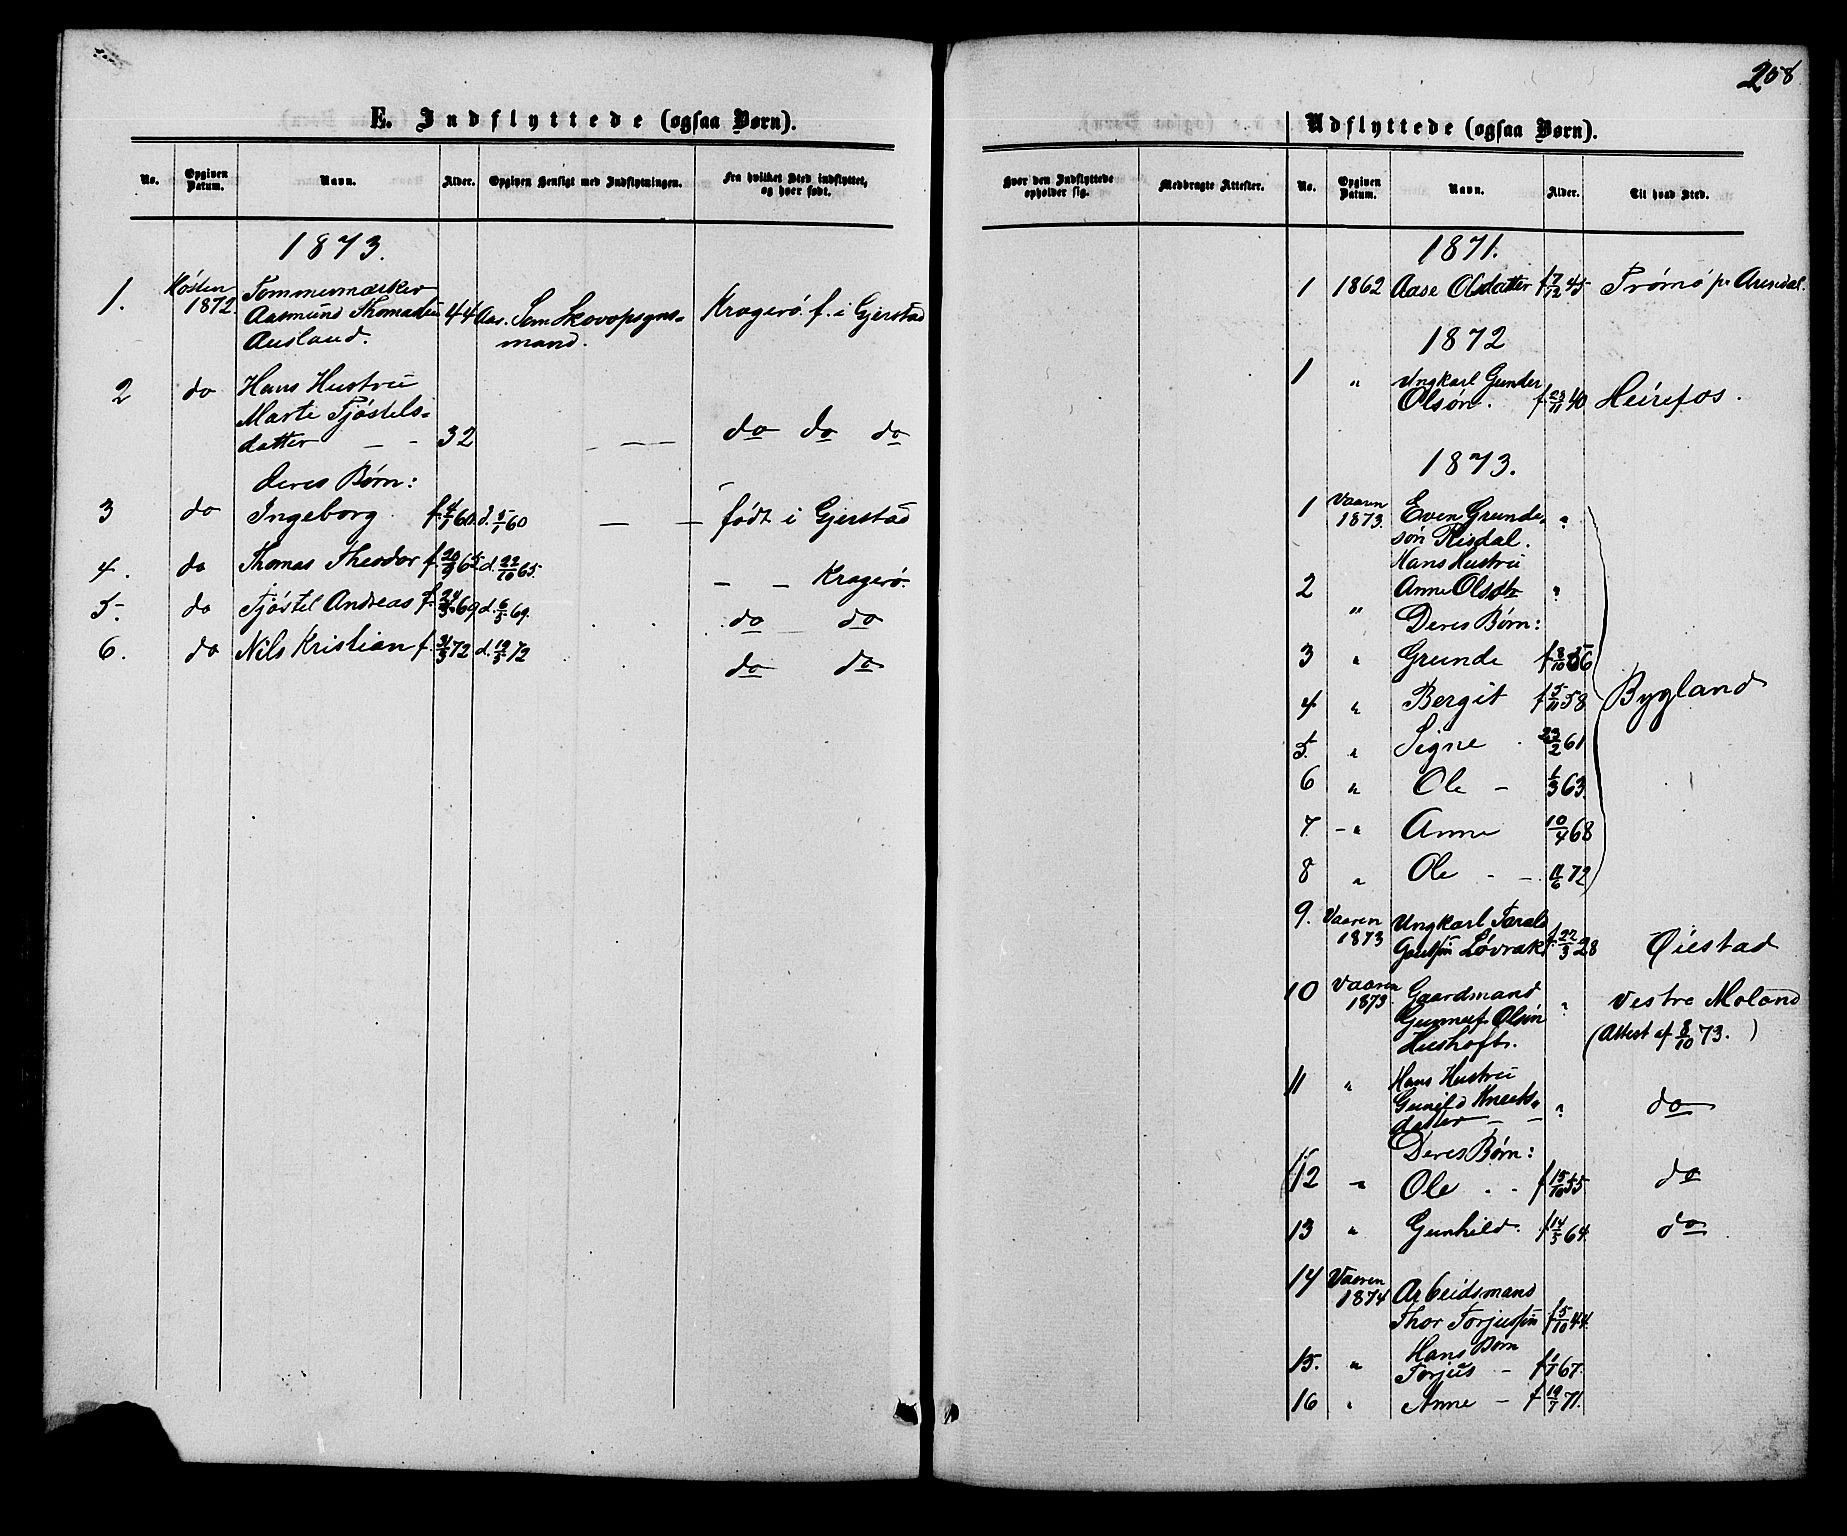 258
E. Indflyttede (ogsaa Børn).
No.
Opgiven Datum.
Navn.
Alder.
Opgiven Hensigt med Indflytningen.
Fra hvilket Sted indflyttet, og hvor født.
1873.
1. Høsten 1872. Tommermærker
Aasmund Thomassen 44 Aar. Som Skovopsyns- Kragerø f. i Gjerstad
Ausland. mand.
2 do Hans Hustru
Marte Tjøstels-
datter - - 32 - - do do do
deres Børn:
3 do Ingeborg f. 4/1 60 d. 5/1 60 - - født i Gjerstad
4. do Thomas Theodor f. 20/9 65 d. 22/10 65. - - Kragerø.
5. do Tjøstel Andreas f. 24/3 69 d. 6/5 69. do do
6. do Nils Kristian f. 31/3 72 d. 19/5 72 do do
Udflyttede (ogsaa Børn).
Hvor den Indflyttede opholder sig.
Medbragte Attester.
No.
Opgiven Datum.
Navn.
Alder.
Til hvad Sted.
1871.
1 1862 Aase Olsdatter f 7/12 45 Trømø pr Arendal.
1872
1 " Ungkarl Gunder
Olsøn. f. 23/11 40 Heirefos.
1873.
1 Vaaren 1873. Even Grunde- "
søn Risdal.
Hans Hustru
2 " Anne Olsdtr "
Deres Børn:
3 " Grunde f 8/10 56
4 " Bergit f 5/11 58 Bygland
5. " Signe . 23/2 61
6 " Ole - 1/3 63.
7. - " Anne 10/4 68
8 " Ole - - 11/6 72
9. Vaaren 1873 Ungkarl Tarald
Løvrak f. 22/3 28 Øiestad
10 Vaaren 1873. Gaardmand " Vestre Moland
Gunnuf Olsøn (Attest af 8/10 73.)
11 " Hans Hustru
Gunild Knuts-
datter - - " do
Deres Børn:
12 " Ole - - f 15/10 55 do
13 " Gunhild. f 14/5 64. do
14 Vaaren 1874 Arbeidsmand
Thor Torjussøn f 5/10 44.
Hans Børn
15. " Torjus - f 1/1 67.
16 " Anne - f 19/7 71.